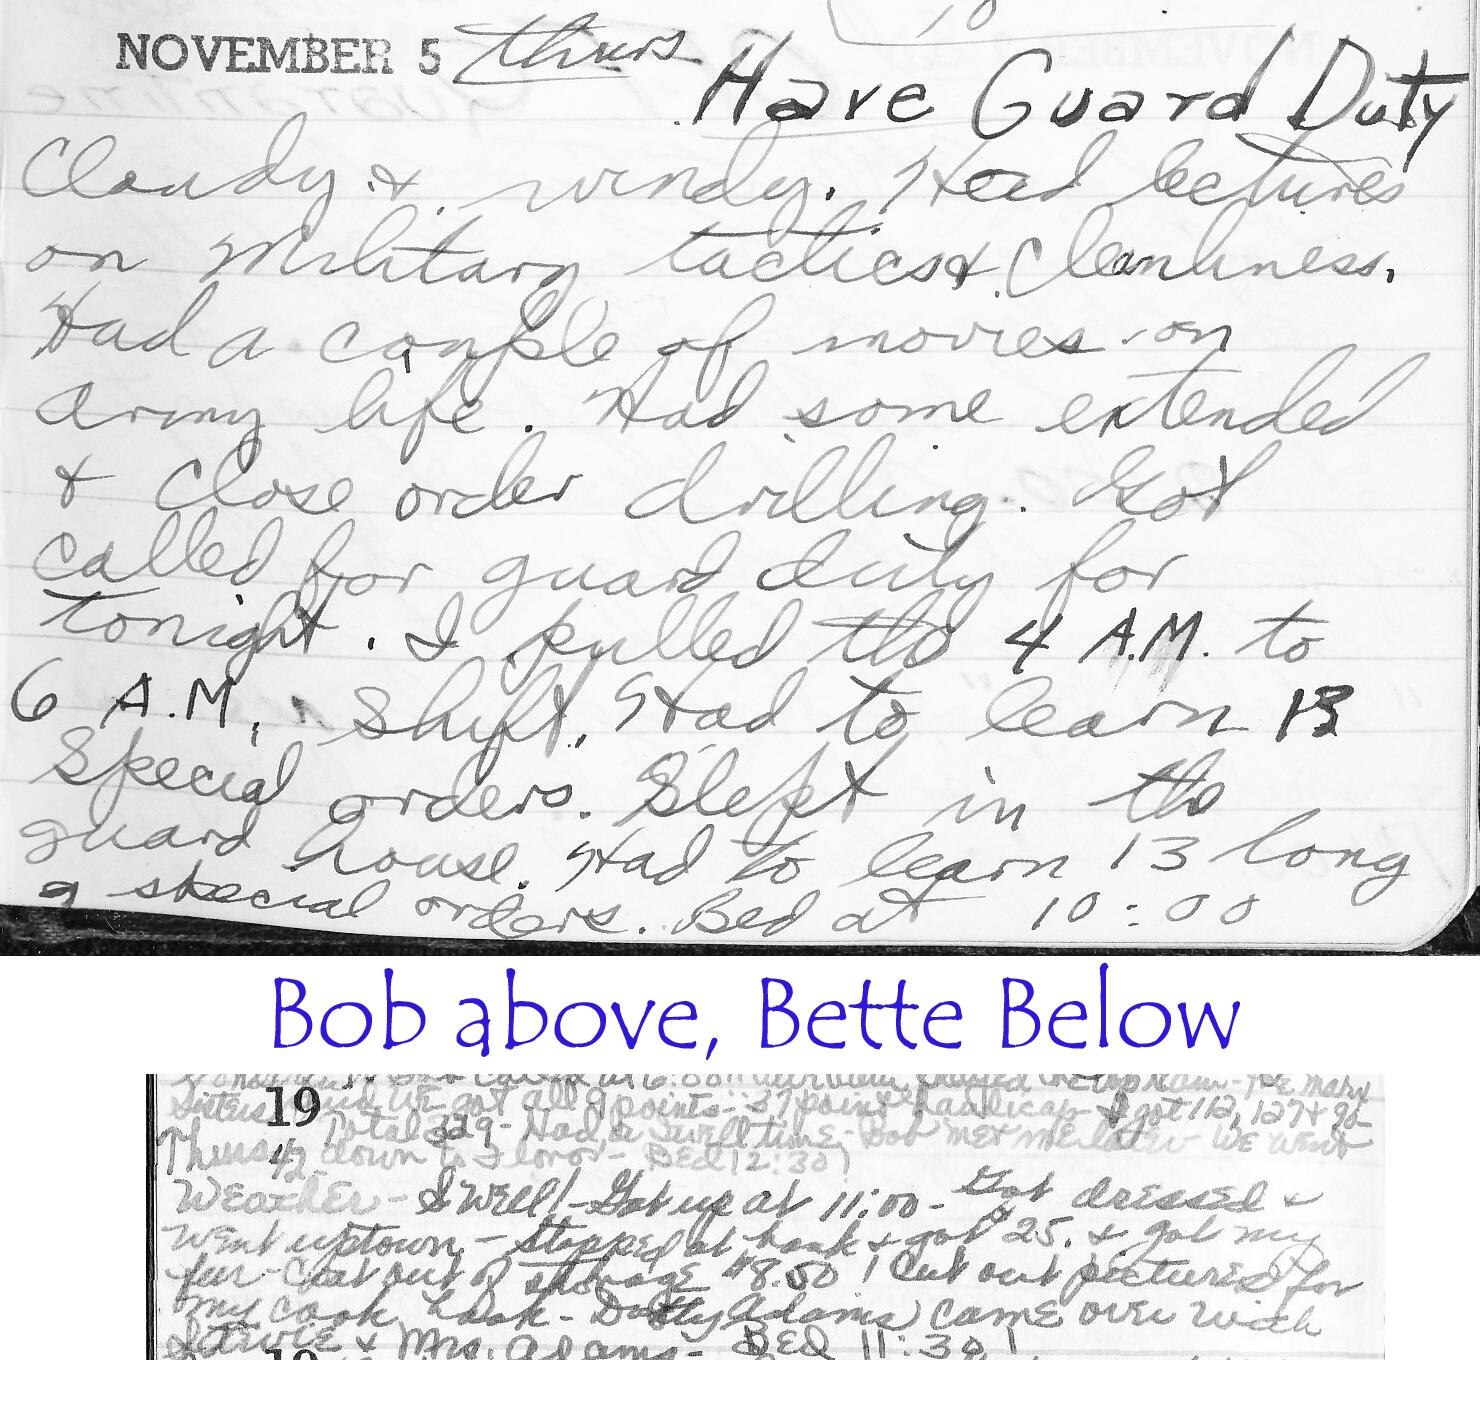 10
NOVEMBER 5 thurs
Have Guard Duty
Cloudy & windy. Had lectures
on military tactics & cleanliness.
Had a couple of movies on
army life. Had some extended
& close order drilling. Got
called for guard duty for
tonight. I pulled the 4 A.M. to
6 A.M. shift. Had to learn 13
special orders. Slept in the
guard house. Had to learn 13 long
special orders. Bed at 10:00
Bob above, Bette Below
at 6:00
19 Sisters and we got all 9 points - 37 point handicap - I got 112, 127 & 90
Total 329 - Had a swell time - Bob met me later - We went
Thurs 42 down to - Bed 12:30
Weather - Swell! - Got up at 11:00 - Got dressed &
went uptown - Stopped at bank & got 25. & got my
fur - coat out of storage $8.50! Cut out pictures for
my cook book - Dotty Adams came over with
Stevie & Mrs. Adams - Bed 11:30!